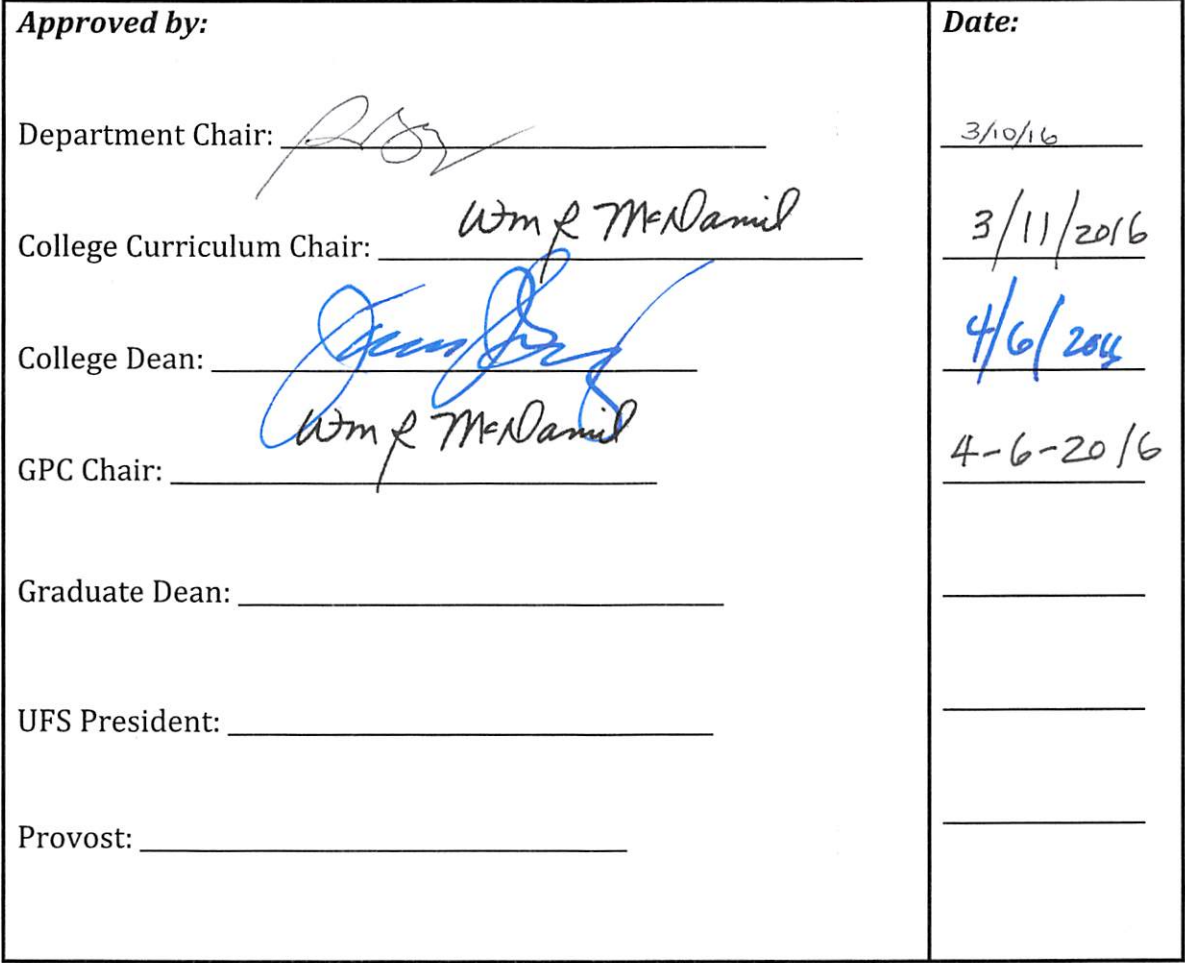 Approved by: Date:
Department Chair: 3/10/16
College Curriculum Chair: Wm R McDaniel 3/11/2016
College Dean: 4/6/2016
GPC Chair: Wm R McDaniel 4-6-2016
Graduate Dean:
UFS President:
Provost: